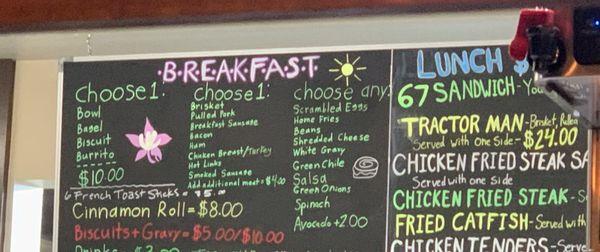 B·R·E·A·K·F·A·S·T
Choose 1:
Bowl
Bagel
Biscuit
Burrito
$10.00
Choose 1:
Brisket
Pulled Pork
Breakfast Sausage
Bacon
Ham
Chicken Breast/Turkey
Hot Links
Smoked Sausage
Add additional meat = $4.00
choose any:
Scrambled Eggs
Home Fries
Beans
Shredded Cheese
White Gravy
Green Chile
Salsa
Green Onions
Spinach
Avocado + 2.00
6 French Toast Sticks =
Cinnamon Roll = $8.00
Biscuits + Gravy = $5.00/$10.00
LUNCH $
67 SANDWICH - You
TRACTOR MAN - Brisket,
Served with One Side - $24.00
CHICKEN FRIED STEAK SA
Served with one Side
CHICKEN FRIED STEAK - S
FRIED CATFISH - Served with
CHICKEN TENDERS - Serve